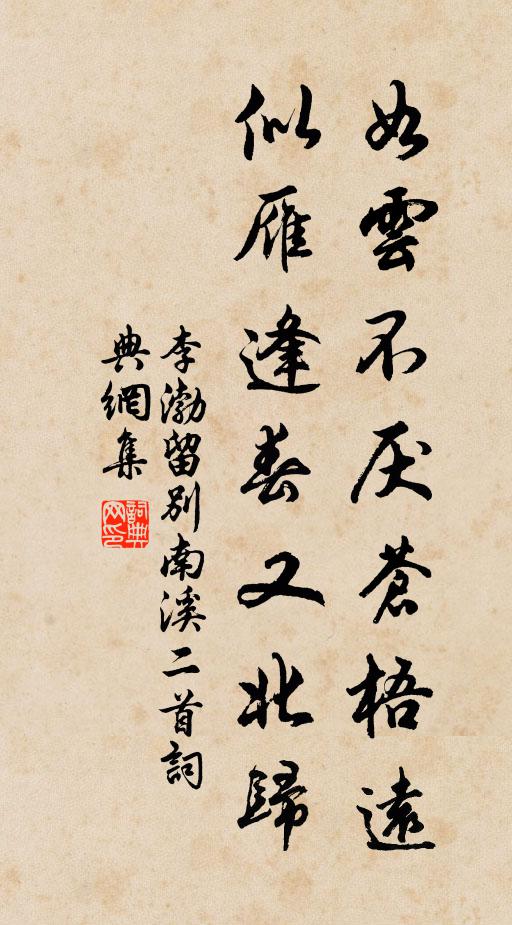 如雲不厌蒼梧遠
似雁逢春又北歸
李渤留別南溪二首詞
典網集
詞典
网印